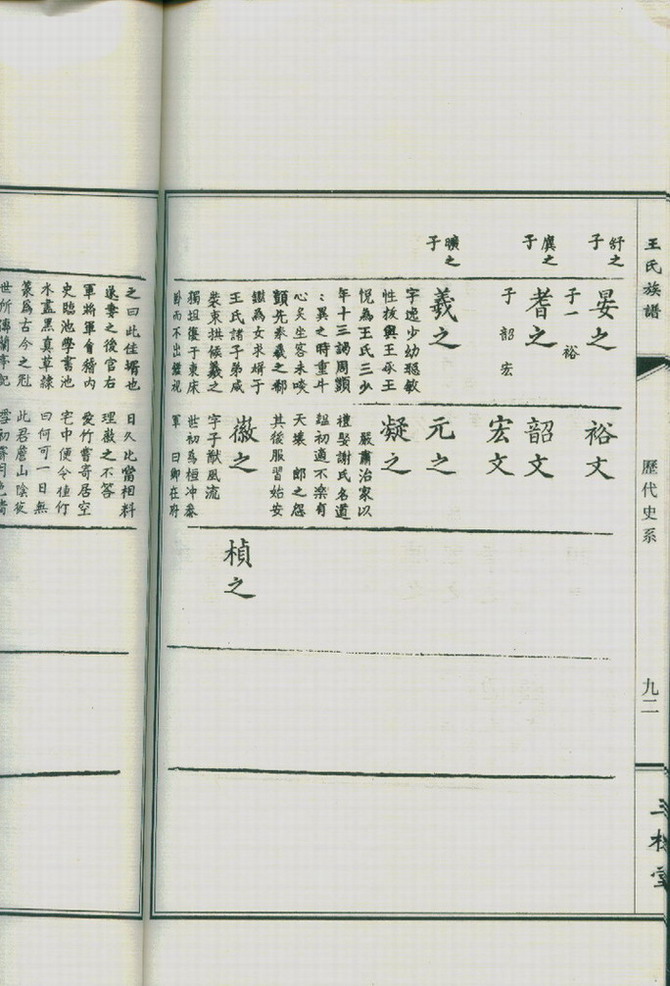 王氏族譜
歷代史系
九二
三槐堂
舒之子
晏之
子一 裕
裕文
廙之子
耆之
韶文
子 韶 宏
宏文
曠之子
羲之
字逸少幼穎敏
性拔與王承王
悅為王氏三少
年十三謁周顗
顗異之時重牛
心炙坐客未啖
顗先奉羲之郗
鑒為女求婿于
王氏諸子弟咸
裝束拱候羲之
獨坦腹于東床
之曰此佳壻也
遂妻之後官右
軍將軍會稽內
史臨池學書池
水盡黑真草隸
篆爲古今之冠
世所傳蘭亭記
元之
凝之
嚴肅治家以
禮娶謝氏名道
韞初適不樂有
天壤 郎之怨
其後服習始安
徽之
字子猷風流
世初為桓冲參
軍 曰卿在府
日久比當相料
理徽之不答
愛竹嘗寄居空
宅中便令植竹
曰何可一日無
此君居山陰夜
雪初霽月色清
楨之